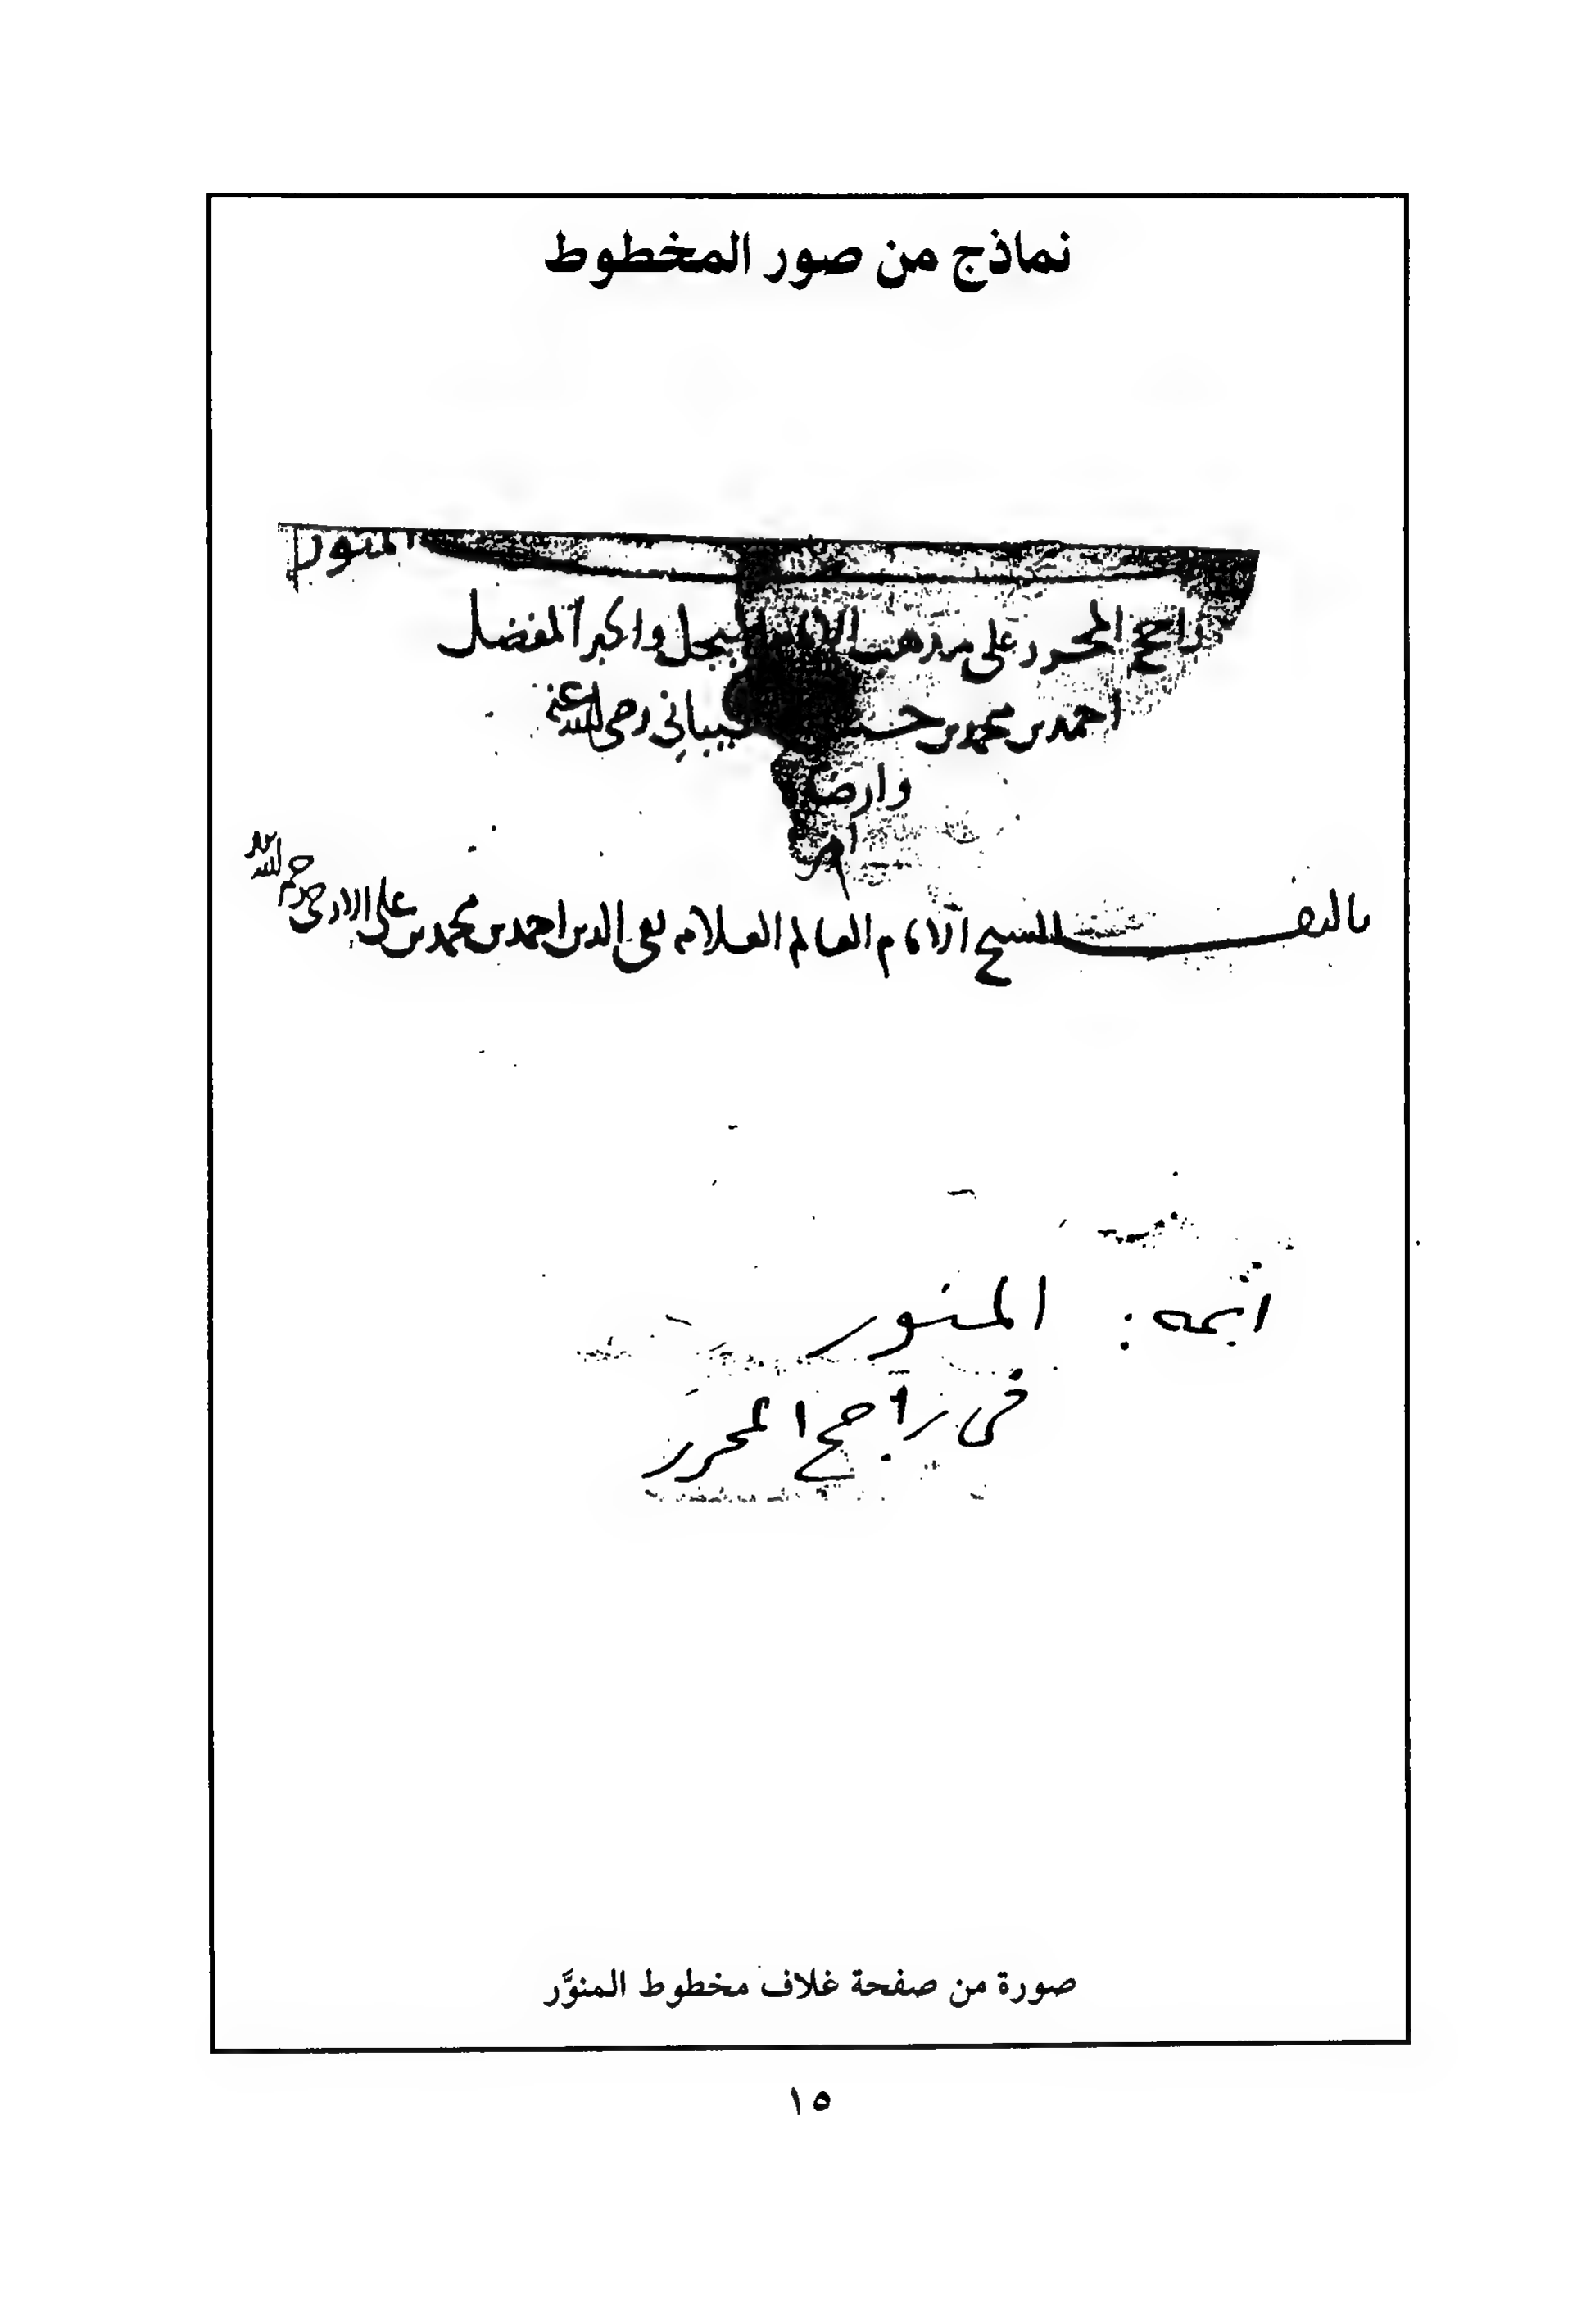 نماذج من صور المخطوط
المنور
راجح المحرر على مذهب الامام المبجل والحبر المفضل
احمد بن محمد بن حنبل الشيباني رضي الله عنه
وارضاه
تاليف الشيخ الامام العالم العلامه تقي الدين احمد بن محمد بن علي الادمي رحمه الله
المنور
في راجح المحرر
صورة من صفحة غلاف مخطوط المنوَّر
١٥